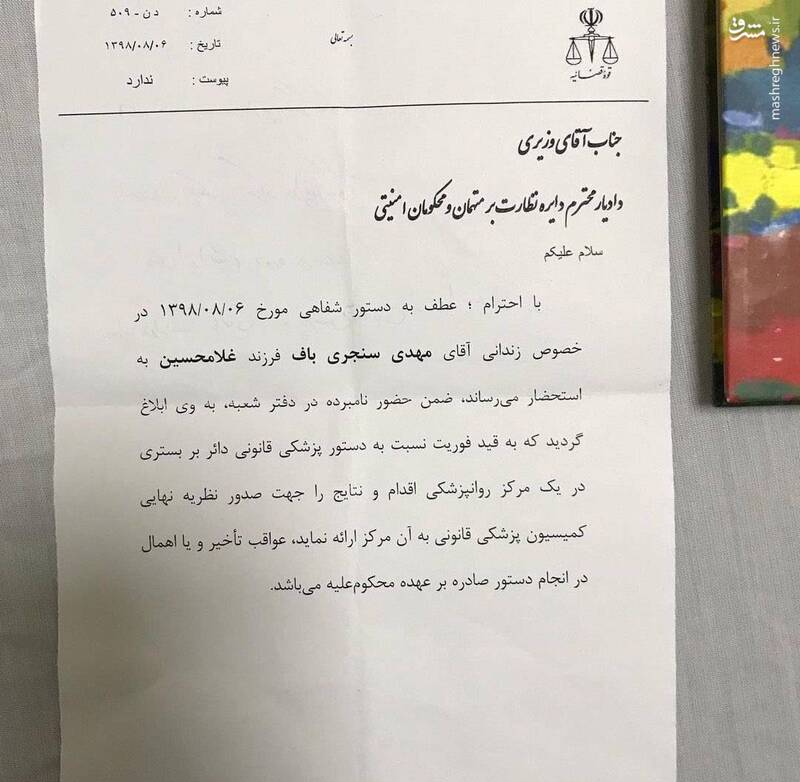 شماره : د ن - ۵۰۹
تاریخ : ۱۳۹۸/۰۸/۰۶
پیوست : ندارد
بسمه تعالی
قوه قضائیه
جناب آقای وزیری
دادیار محترم دایره نظارت بر متهمان و محکومان امنیتی
سلام علیکم
با احترام ؛ عطف به دستور شفاهی مورخ ۱۳۹۸/۰۸/۰۶ در
خصوص زندانی آقای مهدی سنجری باف فرزند غلامحسین به
استحضار می‌رساند، ضمن حضور نامبرده در دفتر شعبه، به وی ابلاغ
گردید که به قید فوریت نسبت به دستور پزشکی قانونی دائر بر بستری
در یک مرکز روانپزشکی اقدام و نتایج را جهت صدور نظریه نهایی
کمیسیون پزشکی قانونی به آن مرکز ارائه نماید، عواقب تأخیر و یا اهمال
در انجام دستور صادره بر عهده محکوم‌علیه می‌باشد.
مشرق
mashreghnews.ir